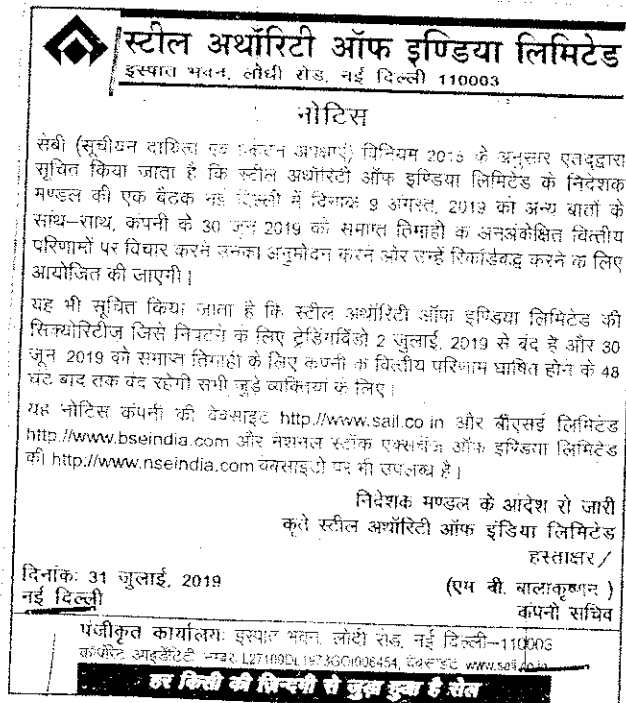 स्टील अथॉरिटी ऑफ इण्डिया लिमिटेड
इस्पात भवन, लोधी रोड, नई दिल्ली 110003
नोटिस
सेबी (सूचीयन दायित्व एवं प्रकटन अपेक्षाएं) विनियम 2015 के अनुसार एतद्द्वारा
सूचित किया जाता है कि स्टील अथॉरिटी ऑफ इण्डिया लिमिटेड के निदेशक
मण्डल की एक बैठक नई दिल्ली में दिनांक 9 अगस्त, 2019 को अन्य बातों के
साथ–साथ, कंपनी के 30 जून 2019 को समाप्त तिमाही के अनअंकेक्षित वित्तीय
परिणामों पर विचार करने उनका अनुमोदन करने और उन्हें रिकॉर्डबद्ध करने के लिए
आयोजित की जाएगी।
यह भी सूचित किया जाता है कि स्टील अथॉरिटी ऑफ इण्डिया लिमिटेड की
सिक्योरिटीज जिसे निपटने के लिए ट्रेडिंगविंडो 2 जुलाई, 2019 से बंद है और 30
जून 2019 को समाप्त तिमाही के लिए कंपनी के वित्तीय परिणाम घोषित होने के 48
घंटे बाद तक बंद रहेगी सभी जुड़े व्यक्तियों के लिए।
यह नोटिस कंपनी की वेबसाइट http://www.sail.co in और बीएसई लिमिटेड
http://www.bseindia.com और नेशनल स्टॉक एक्सचेंज ऑफ इण्डिया लिमिटेड
की http://www.nseindia.com वेबसाइटों पर भी उपलब्ध है।
निदेशक मण्डल के आदेश से जारी
कृते स्टील अथॉरिटी ऑफ इंडिया लिमिटेड
हस्ताक्षर/
दिनांक: 31 जुलाई, 2019
(एम बी. बालाकृष्णन )
नई दिल्ली
कंपनी सचिव
पंजीकृत कार्यालय: इस्पात भवन, लोदी रोड, नई दिल्ली–110003
कॉर्पोरेट आइडेंटिटी नम्बर L27109DL1973GOI006454, वेबसाइट www.sail.co.in
हर किसी की ज़िन्दगी से जुड़ा हुआ है सेल